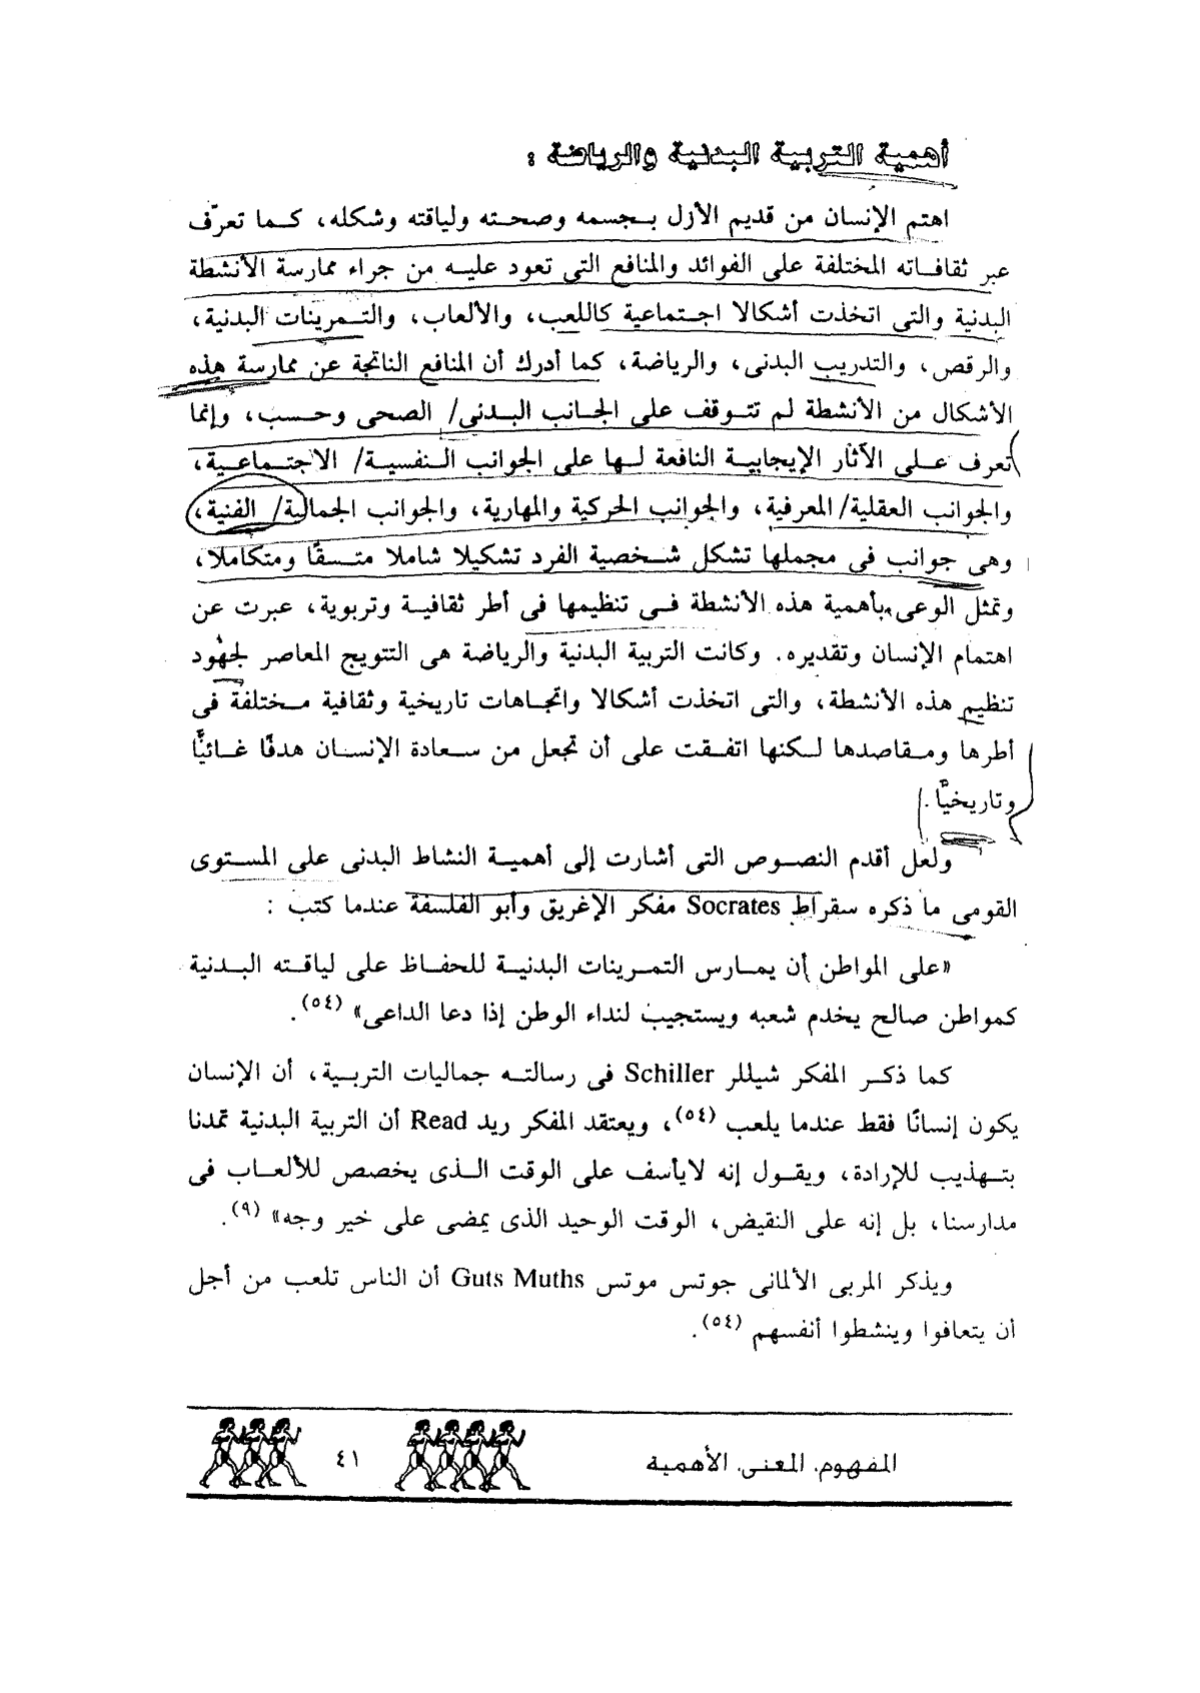 أهمية التربية البدنية والرياضة :
اهتم الإنسان من قديم الأزل بجسمه وصحته ولياقته وشكله، كما تعرّف
عبر ثقافاته المختلفة على الفوائد والمنافع التى تعود عليه من جراء ممارسة الأنشطة
البدنية والتى اتخذت أشكالا اجتماعية كاللعب، والألعاب، والتمرينات البدنية،
والرقص، والتدريب البدنى، والرياضة، كما أدرك أن المنافع الناتجة عن ممارسة هذه
الأشكال من الأنشطة لم تتوقف على الجانب البدنى/ الصحى وحسب، وإنما
تعرف على الآثار الإيجابية النافعة لها على الجوانب النفسية/ الاجتماعية،
والجوانب العقلية/ المعرفية، والجوانب الحركية والمهارية، والجوانب الجمالية/ الفنية،
وهى جوانب فى مجملها تشكل شخصية الفرد تشكيلا شاملا متسقًا ومتكاملا،
وتمثل الوعى بأهمية هذه الأنشطة فى تنظيمها فى أطر ثقافية وتربوية، عبرت عن
اهتمام الإنسان وتقديره. وكانت التربية البدنية والرياضة هى التتويج المعاصر لجهود
تنظيم هذه الأنشطة، والتى اتخذت أشكالا واتجاهات تاريخية وثقافية مختلفة فى
أطرها ومقاصدها لكنها اتفقت على أن تجعل من سعادة الإنسان هدفًا غائيًّا
وتاريخيًّا.
ولعل أقدم النصوص التى أشارت إلى أهمية النشاط البدنى على المستوى
القومى ما ذكره سقراط Socrates مفكر الإغريق وأبو الفلسفة عندما كتب :
«على المواطن أن يمارس التمرينات البدنية للحفاظ على لياقته البدنية
كمواطن صالح يخدم شعبه ويستجيب لنداء الوطن إذا دعا الداعى» (٥٤).
كما ذكر المفكر شيللر Schiller فى رسالته جماليات التربية، أن الإنسان
يكون إنسانًا فقط عندما يلعب (٥٤)، ويعتقد المفكر ريد Read أن التربية البدنية تمدنا
بتهذيب للإرادة، ويقول إنه لايأسف على الوقت الذى يخصص للألعاب فى
مدارسنا، بل إنه على النقيض، الوقت الوحيد الذى يمضى على خير وجه» (٩).
ويذكر المربى الألمانى جوتس موتس Guts Muths أن الناس تلعب من أجل
أن يتعافوا وينشطوا أنفسهم (٥٤).
المفهوم. المعنى. الأهمية ٤١